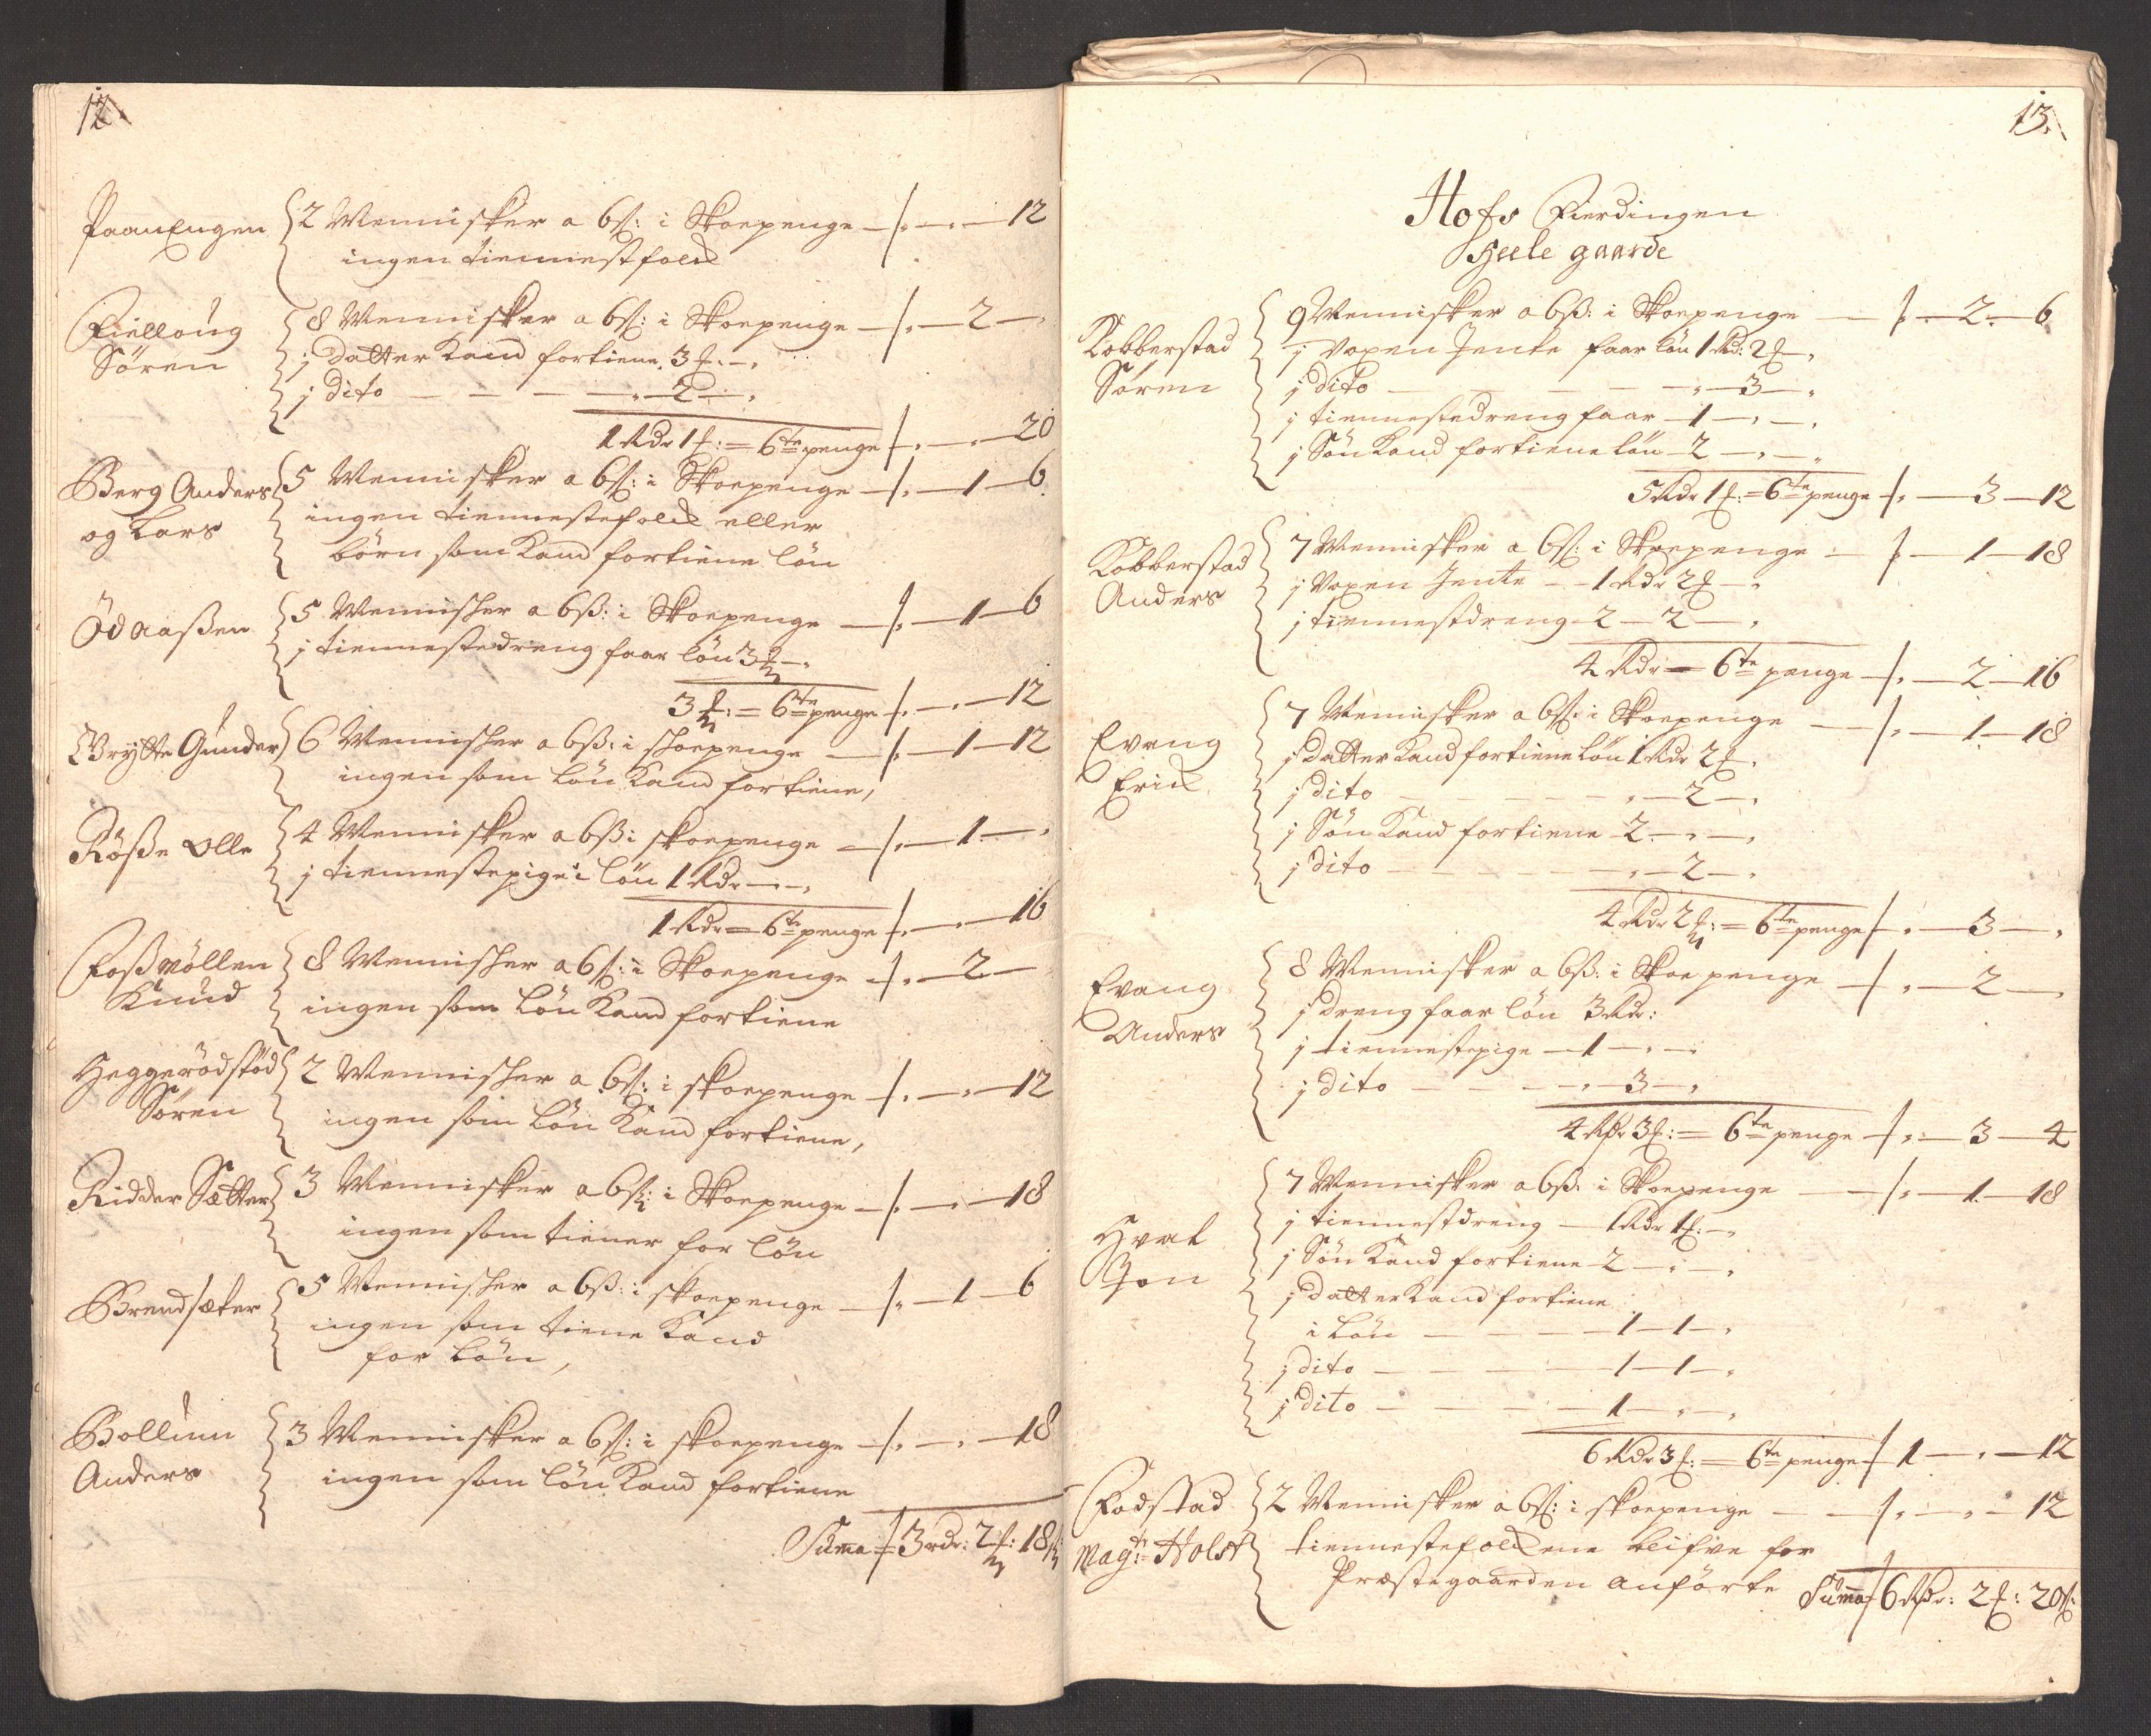 12
PaauEngen 2 Mennisker a 6ß: i Skoepenge — " — 12
ingen tiennestfolck
Fiellaug Søren 8 Mennisker a 6ß: i Skoepenge — " — 2 — "
j datter kand fortiene 3 — "
j dito — 2 — "
1 Rdr 1 := 6te penge — " — 20
Berg Anders og Lars 5 Mennisker a 6ß: i Skoepenge — " — 1 — 6
ingen tiennestefolck eller
børn som kand fortiene løn
Ödaaßen 5 Mennisker a 6ß: i Skoepenge — " — 1 — 6
j tiennestedreng faar løn 3 — "
3 := 6te penge — " — 12
Brÿtte Gunder 6 Mennisker a 6ß: i skoepenge — " — 1 — 12
ingen som løn kand fortiene,
Röße Olle 4 Mennisker a 6ß: i skoepenge — " — 1 — "
j tiennestepige i løn 1 Rdr — "
1 Rdr = 6te penge — " — 16
Foßmöllen Knud 8 Mennisker a 6ß: i Skoepenge — " — 2 —
ingen som løn kand fortiene
Heggerødstöd Søren 2 Mennisker a 6ß: i skoepenge — " — 12
ingen som løn kand fortiene,
Ridder Sætter 3 Mennisker a 6ß: i Skoepenge — " — 18
ingen som tiener for løn
Brendsæter 5 Mennisker a 6ß: i skoepenge — " — 1 — 6
ingen som tiene kand
for løn,
Bollum Anders 3 Mennisker a 6ß: i skoepenge — " — 18
ingen som løn kand fortiene
Suma 3 rdr: 2 : 18ß
13.
Hofs Fierdingen
Heele gaarde
Kobberstad Søren 9 Mennisker a 6ß: i Skoepenge — 2 — 6
j voxen Jente faar løn 1 Rd: 2 — "
j dito — " — 3 — "
j tiennestedreng faar — 1 — " — "
j Søn kand fortiene løn 2 — " — "
5 Rdr 1 := 6te penge — " — 3 — 12
Kobberstad Anders 7 Mennisker a 6ß: i Skoepenge — 1 — 18
j voxen Jente — 1 Rdr 2 — "
j tiennestdreng 2 — 2 — "
4 Rdr = 6te penge — " — 2 — 16
Evang Erick 7 Mennisker a 6ß: i Skoepenge — " — 1 — 18
j datter kand fortiene løn 1 Rdr 2 "
j dito — " — 2 — "
j Søn kand fortiene 2 — " — "
j dito — " — 2 — "
4 Rdr 2 := 6te penge — " — 3 — "
Evang Anders 8 Mennisker a 6ß: i Skoe penge — " — 2 — "
j dreng faar løn 3 Rdr:
j tiennestepige — 1 — " — "
j dito — " — 3 — "
4 Rdr 3 := 6te penge — " — 3 — 4
Hval Jon 7 Mennisker a 6ß: i Skoepenge — " — 1 — 18
j tiennestdreng — 1 Rdr 1 — "
j Søn kand fortiene 2 — " — "
j datter kand fortiene
i løn — 1 — 1 — "
j dito — 1 — 1 — "
j dito — 1 — " — "
6 Rdr 3 := 6te penge 1 — " — 12
Fodstad Magr: Holst 2 Mennisker a 6ß: i skoepenge — " — " — 12
tiennestefolckene blifve for
Præstegaarden anförte Suma 6 Rdr: 2 : 20ß: